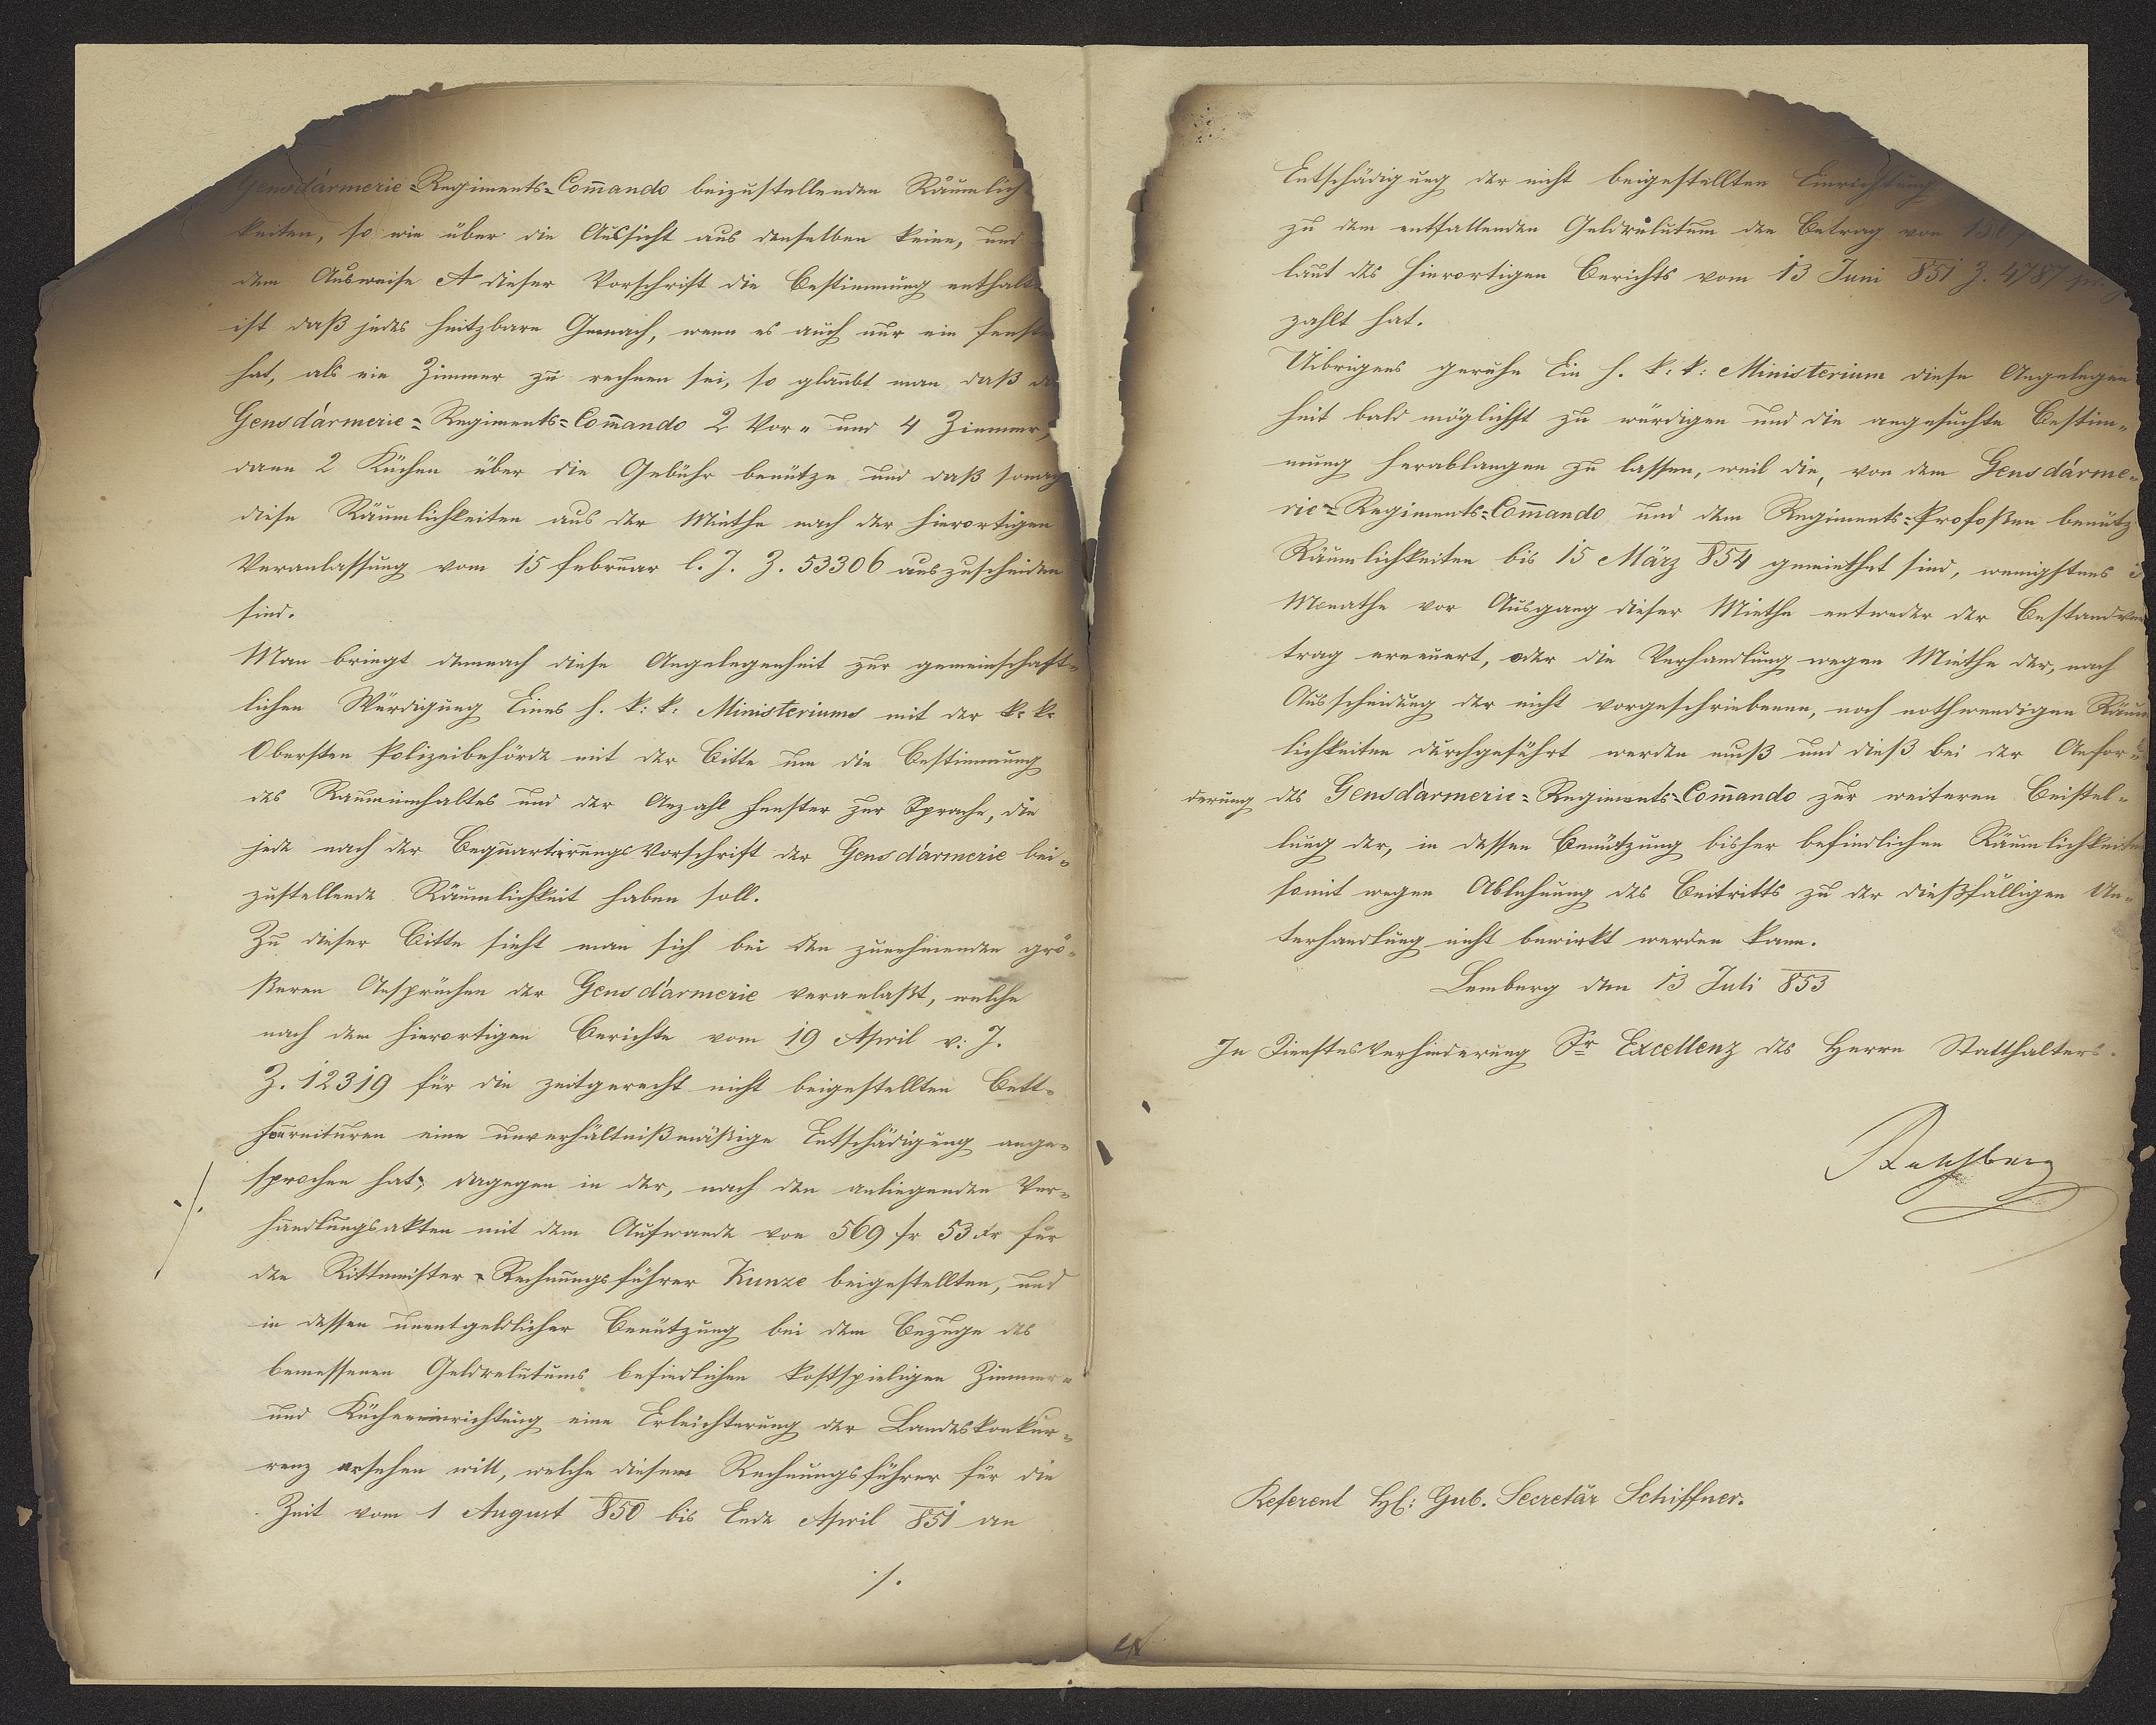 Gensdàrmerie=Regiments=Com̄ando beizustellenden Räumlich
keiten, so wie über die Aussicht aus denselben keine, und
dem Ausweise A dieser Vorschrift die Bestimmung enthalt
ist daß jedes heitzbare Gemach, wenn es auch nur ein Fenst
hat, als ein Zimmer zu rechnen sei, so glaubt man daß d
Gensdàrmerie=Regiments=Com̄ando 2 Vor= und 4 Zimmer,
dann 2 Küchen über die Gebühr benütze und daß sonach
diese Räumlichkeiten aus der Miethe nach der hierortigen
Veranlassung vom 15 Februar l. J. Z. 53306 auszuscheiden
sind.
Man bringt demnach diese Angelegenheit zur gemeinschaft=
lichen Würdigung Eines h. k: k: Ministeriums mit der k: k:
Obersten Polizeibehörde mit der Bitte um die Bestimmung
des Rauminhaltes und der Anzahl Fenster zur Sprache, die
jede nach der Bequartirungs Vorschrift der Gensdàrmerie bei=
zustellende Räumlichkeit haben soll.
Zu dieser Bitte sieht man sich bei den zunehmenden grö=
ßeren Ansprüchen der Gensdàrmerie veranlaßt, welche
nach dem hierortigen Berichte vom 19 April v: J.
Z. 12319 für die zeitgerecht nicht beigestellten Bett=
fournituren eine unverhältnißmäßige Entschädigung ange=
sprochen hat, dagegen in der, nach den anliegenden Ver=
·/.
handlungsakten mit dem Aufwande von 569 fr 53 xr für
den Rittmeister=Rechnungsführer Kunze beigestellten, und
in dessen unentgeldlicher Benützung bei dem Bezuge des
bemessenen Geldrelutums befindlichen kostspieligen Zimmer=
und Kücheneinrichtung eine Erleichterung der Landeskonkur=
renz ersehen will, welche diesem Rechnungsführer für die
Zeit vom 1 August 850 bis Ende April 851 an
·/.
Entschädigung der nicht beigestellten Einrichtung
zu dem entfallenden Geldrelutum den Betrag von
laut des hierortigen Berichts vom 13 Juni 851 Z. 4787
zahlt hat.
Uibrigens geruhe Ein h. k: k: Ministerium diese Angelegen
heit bald möglichst zu würdigen und die angesuchte Bestim=
mung herablangen zu lassen, weil die, von dem Gensdàrme=
rie=Regiments=Com̄ando und dem Regiments=Profoßen benütz
Räumlichkeiten bis 15 März 854 gemiethet sind, wenigstens
Monathe vor Ausgang dieser Miethe entweder der Bestandver
trag erneuert, oder die Verhandlung wegen Miethe der, nach
Ausscheidung der nicht vorgeschriebenen, noch nothwendigen Räum
lichkeiten durchgeführt werden muß und dieß bei der Anfor=
derung des Gensdàrmerie=Regiments=Com̄ando zur weiteren Beistel=
lung der, in dessen Benützung bisher befindlichen Räumlichkeiten
somit wegen Ablehnung des Beitritts zu der dießfälligen Un=
terhandlung nicht bewirkt werden kann.
Lemberg den 13 Juli 853
In Dienstesverhinderung Sr Excellenz des Herrn Statthalters.
Referent H: Gub. Secretär Schiffner.